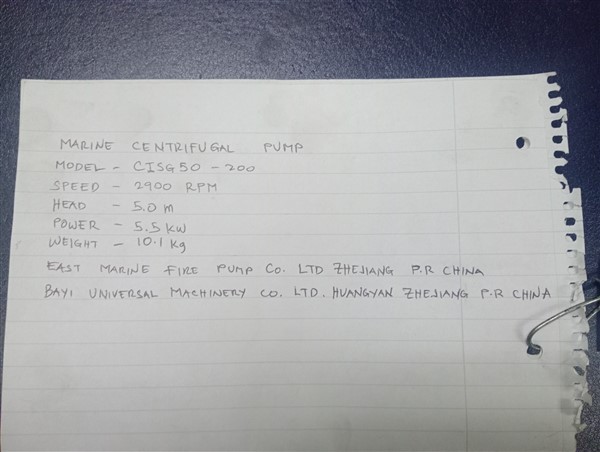 MARINE CENTRIFUGAL PUMP
MODEL - CISG50 - 200
SPEED - 2900 RPM
HEAD - 5.0 m
POWER - 5.5 KW
WEIGHT - 10.1 Kg
EAST MARINE FIRE PUMP CO. LTD ZHEJIANG P.R CHINA
BAYI UNIVERSAL MACHINERY CO. LTD. HUANGYAN ZHEJIANG P.R CHINA